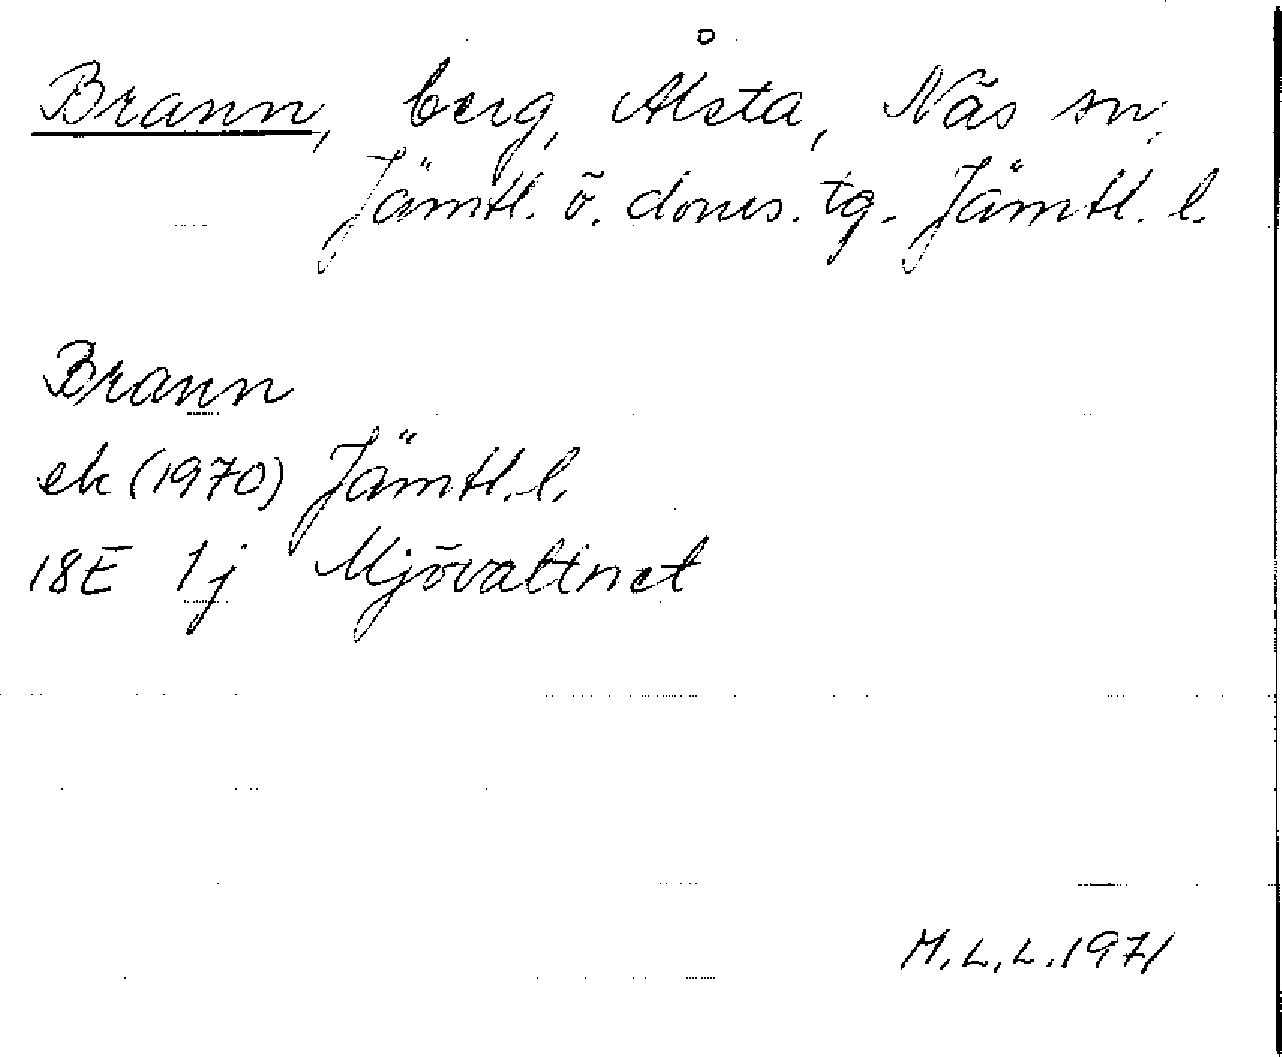 Brann, berg, Ålsta, Näs sn,
Jämtl. ö. doms. tg. Jämtl. l.
Brann
ek (1970) Jämtl. l.
18E 1j Mjövattnet
M.L.L. 1971